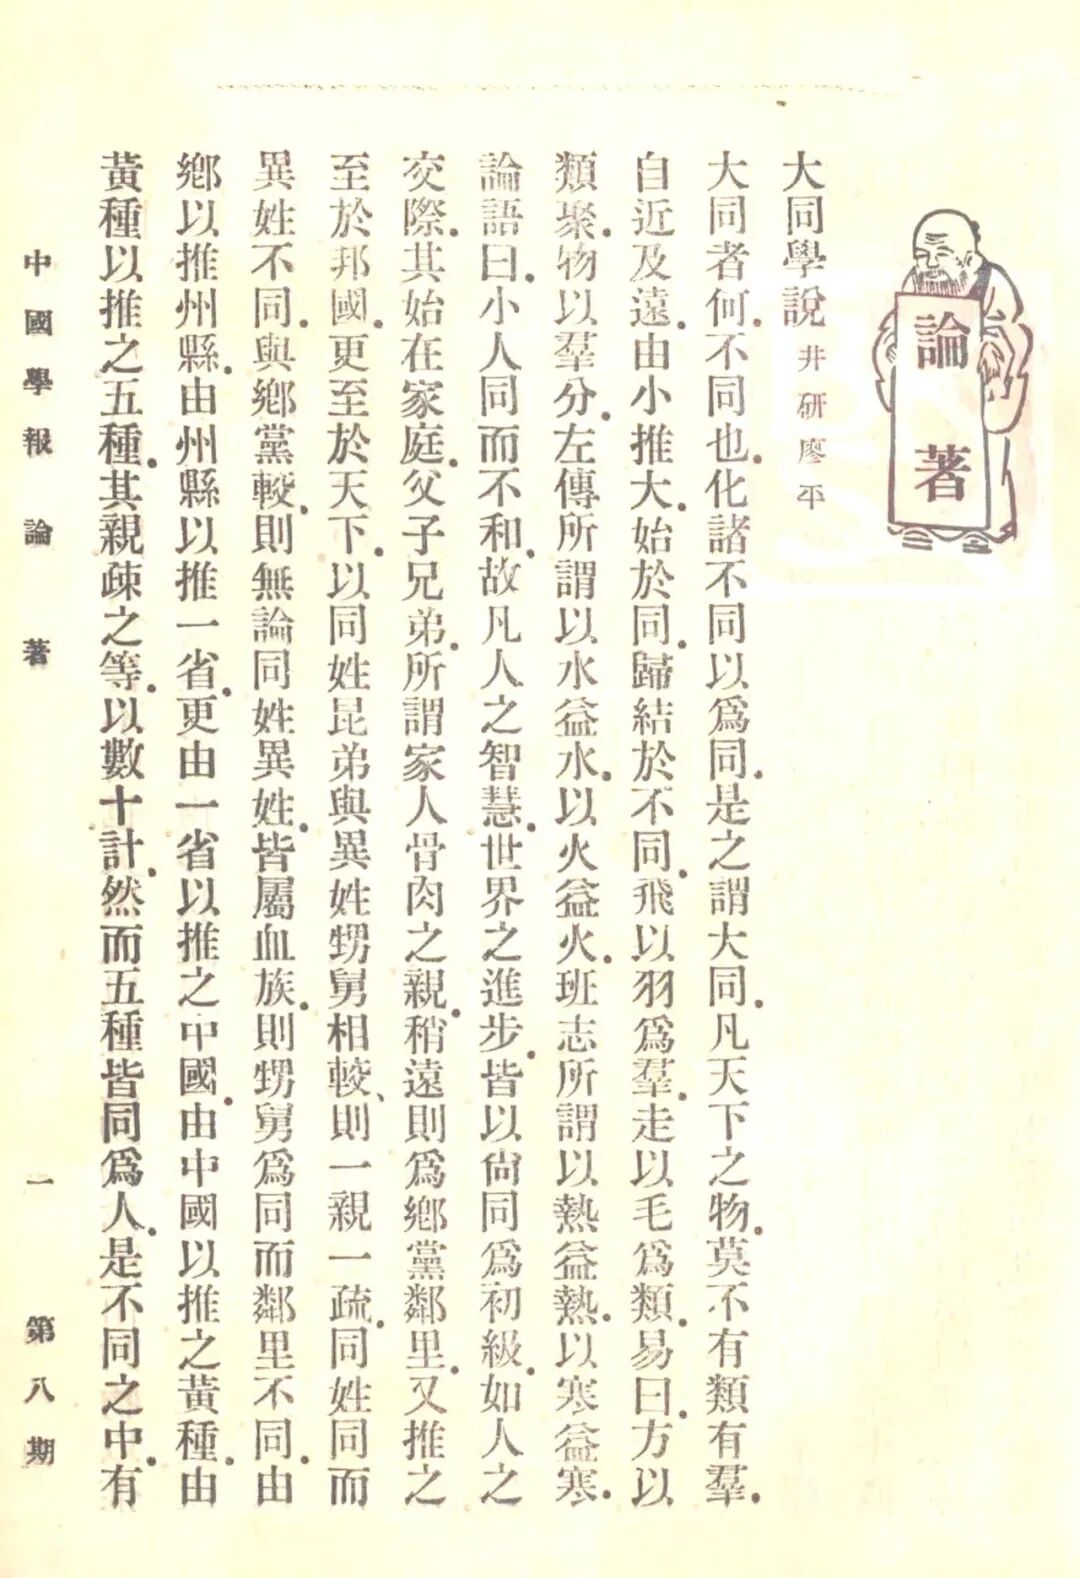 論著
大同學說 井研廖平
大同者何.不同也.化諸不同以爲同.是之謂大同.凡天下之物.莫不有類有羣.
自近及遠.由小推大.始於同.歸結於不同.飛以羽爲羣.走以毛爲類.易曰.方以
類聚.物以羣分.左傳所謂以水益水.以火益火.班志所謂以熱益熱.以寒益寒.
論語曰.小人同而不和.故凡人之智慧.世界之進步.皆以尙同爲初級.如人之
交際.其始在家庭.父子兄弟.所謂家人骨肉之親.稍遠則爲鄉黨鄰里.又推之
至於邦國.更至於天下.以同姓昆弟與異姓甥舅相較、則一親一疏.同姓同而
異姓不同.與鄉黨較.則無論同姓異姓.皆屬血族.則甥舅爲同而鄰里不同.由
鄉以推州縣.由州縣以推一省.更由一省以推之中國.由中國以推之黃種.由
黃種以推之五種.其親疎之等.以數十計.然而五種皆同爲人.是不同之中.有
中國學報 論著 一 第八期